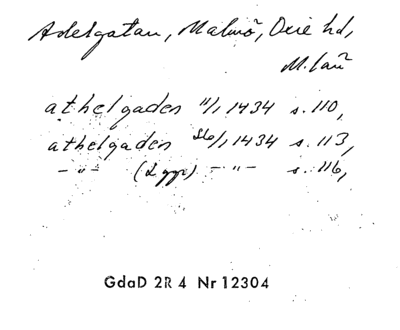 Adelgatan, Malmö, Oxie hd,
M.län
athelgaden 11/1 1434 s. 110,
athelgaden 26/1 1434 s. 113,
-"- (2 ggr) -"- s. 116,
GdaD 2R 4 Nr 12304